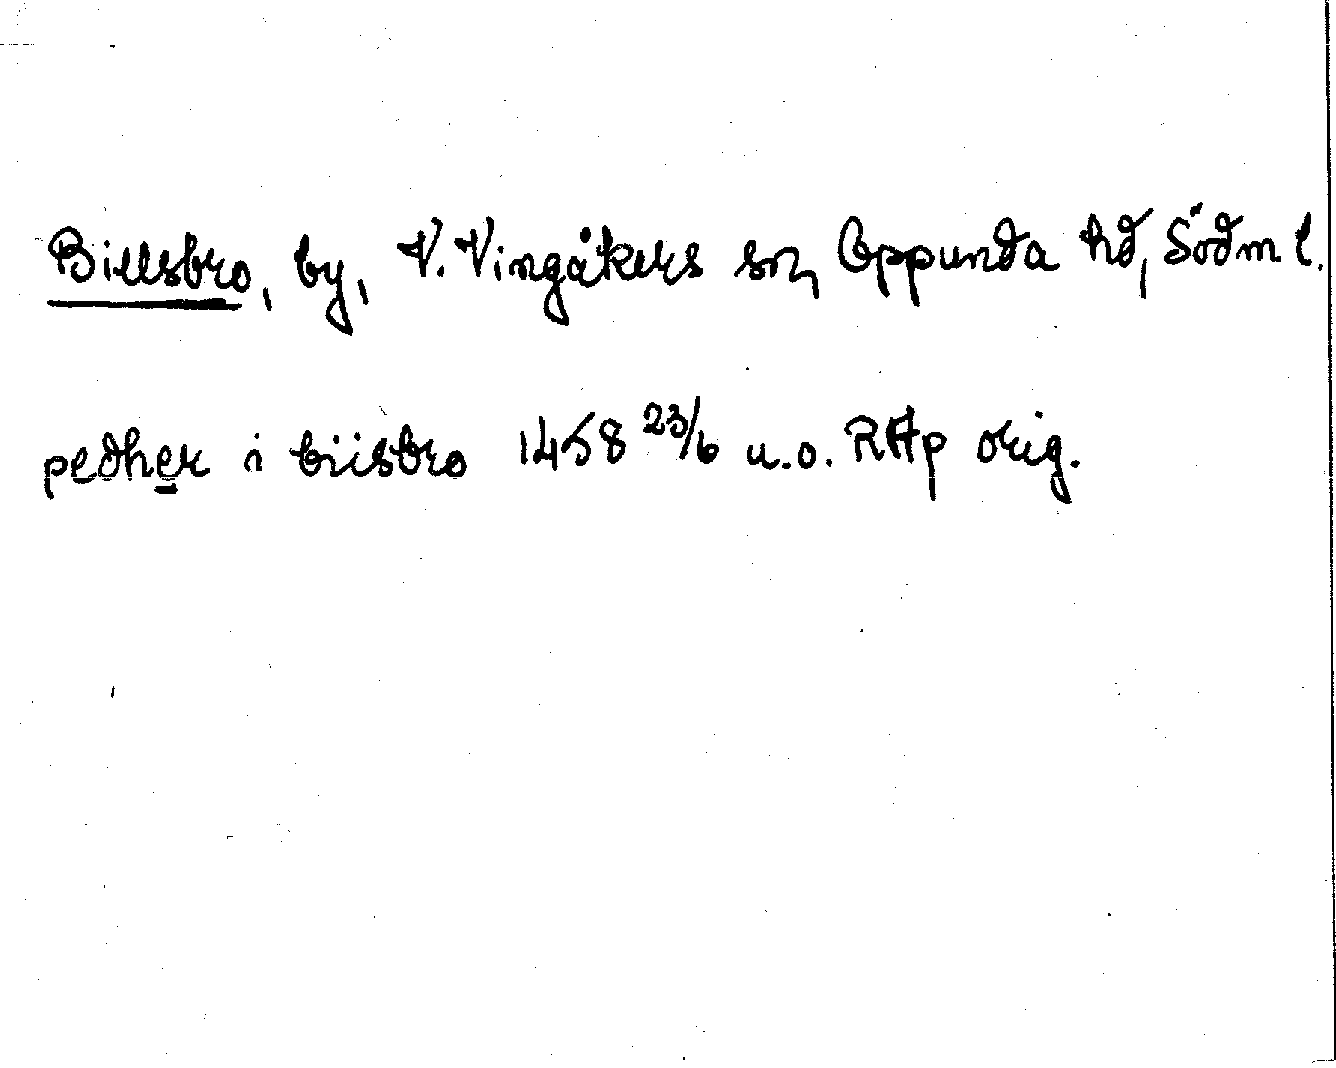 Billsbro, by, V. Vingåkers sn, Oppunda hd, Södm l.
pedher i biisbro 1458 23/6 u.o. RAp orig.